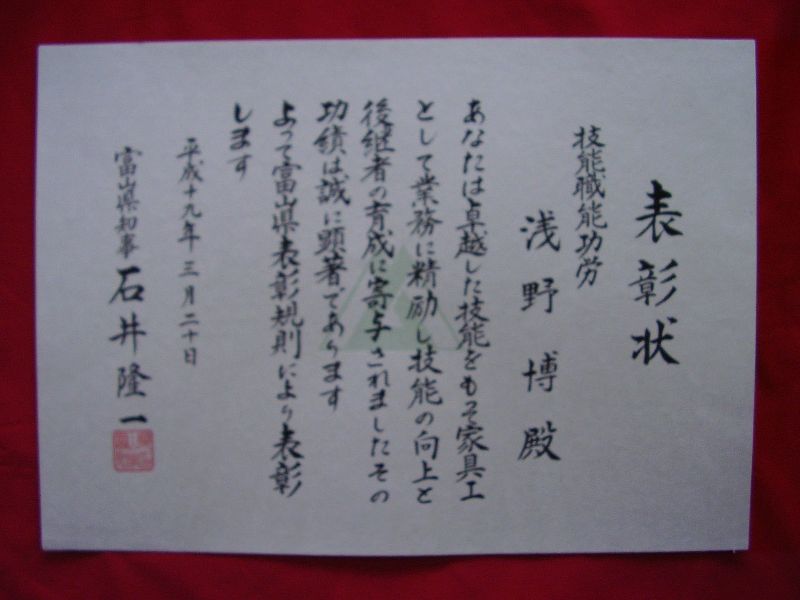 表彰状
技能職能功労
浅野博殿
あなたは卓越した技能をもって家具工
として業務に精励し技能の向上と
後継者の育成に寄与されましたその
功績は誠に顕著であります
よって富山県表彰規則により表彰
します
平成十九年三月二十日
富山県知事 石井隆一